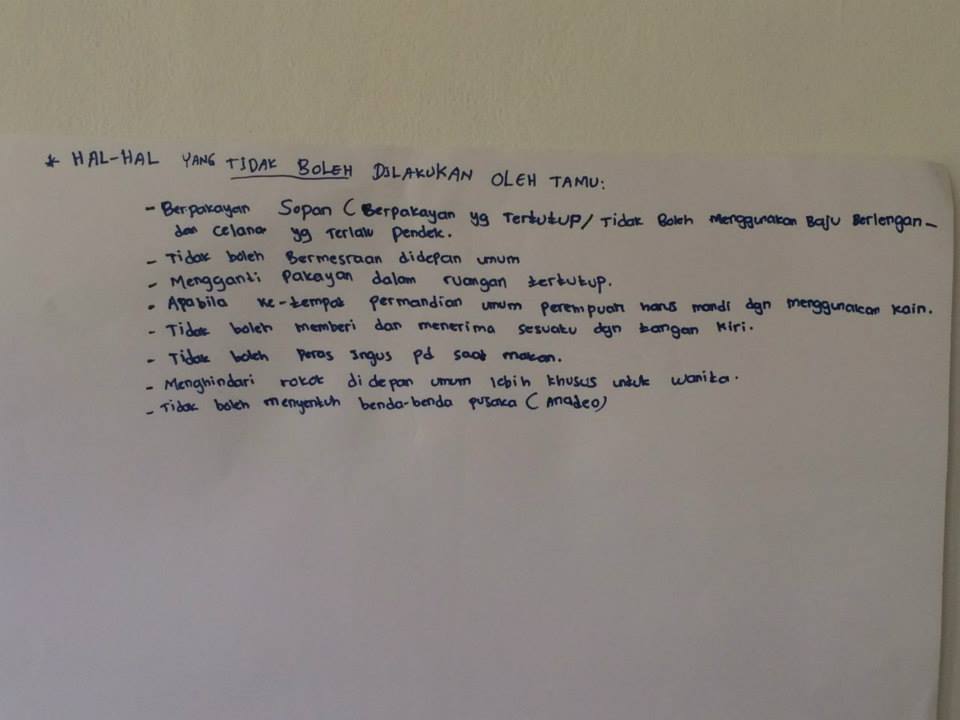 * HAL-HAL YANG TIDAK BOLEH DILAKUKAN OLEH TAMU:
- Berpakayan Sopan ( Berpakayan yg Tertutup / Tidak Boleh Menggunakan Baju Berlengan-
dan celana yg Terlalu Pendek.
- Tidak boleh Bermesraan didepan umum
- Mengganti Pakayan dalam ruangan tertutup.
- Apabila ke-tempat permandian umum perempuan harus mandi dgn menggunakan kain.
- Tidak boleh memberi dan menerima sesuatu dgn tangan kiri.
- Tidak boleh Peras Ingus pd saat makan.
- Menghindari rokok di depan umum lebih khusus untuk wanita.
- Tidak boleh menyentuh benda-benda pusaka ( Anadeo)